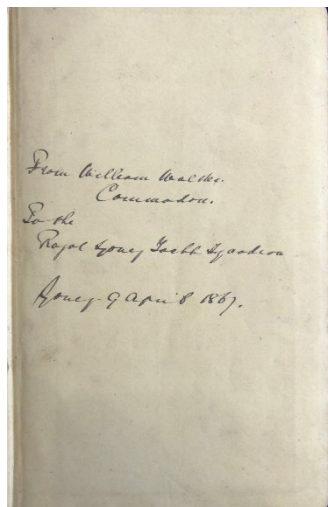 From William Walker
Commodore.
To the
Royal Sydney Yacht Squadron
Sydney 9 April 1867.